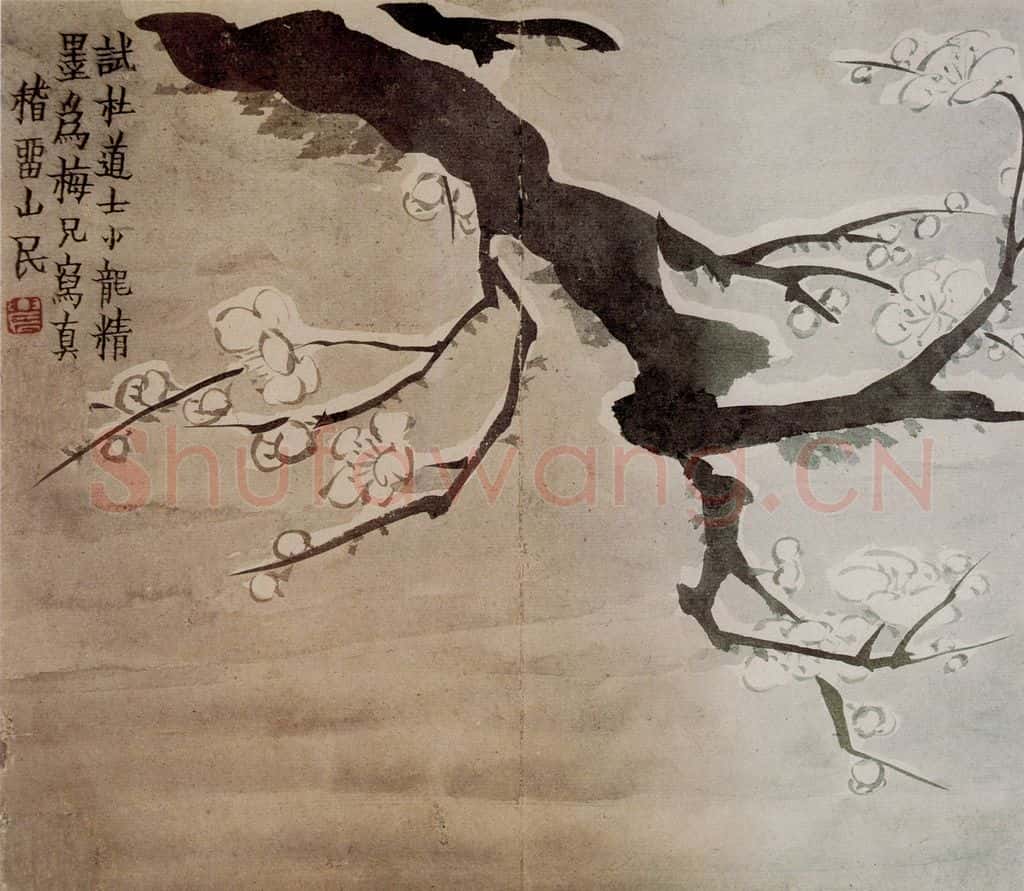 試杜道士小龍精
墨爲梅兄寫真
稽畱山民
Shufawang.CN